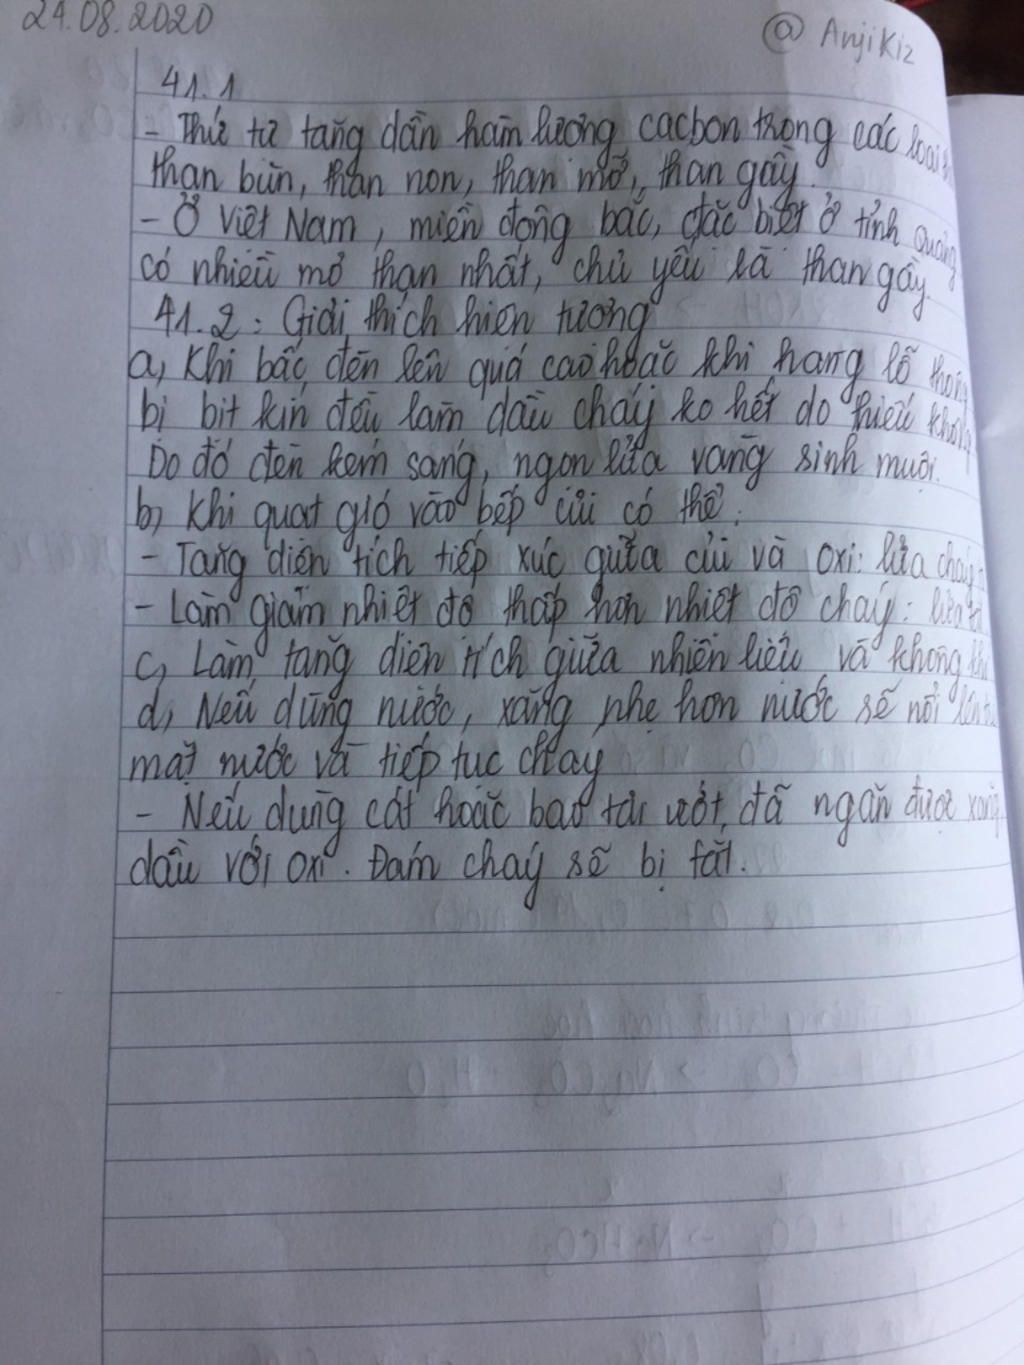 24.08.2020
@ AnjiKiz
41.1
- Thứ tự tăng dần hàm lượng cacbon trong các loại
than bùn, than non, than mỡ, than gầy.
- Ở Việt Nam, miền đông bắc, đặc biệt ở tỉnh Quảng
có nhiều mỏ than nhất, chủ yếu là than gầy.
41.2: Giải thích hiện tượng
a, Khi bấc đèn lên quá cao hoặc khi hang lỗ
bị bịt kín đều làm dầu cháy ko hết do thiếu không
Do đó đèn kém sáng, ngọn lửa vàng sinh muội.
b, Khi quạt gió vào bếp củi có thể:
- Tăng diện tích tiếp xúc giữa củi và oxi: lửa cháy
- Làm giảm nhiệt độ thấp hơn nhiệt độ cháy: lửa
c, Làm tăng diện tích giữa nhiên liệu và không khí
d, Nếu dùng nước, xăng nhẹ hơn nước sẽ nổi lên
mặt nước và tiếp tục cháy
- Nếu dùng cát hoặc bao tải ướt, đã ngăn được xăng
dầu với oxi. Đám cháy sẽ bị tắt.